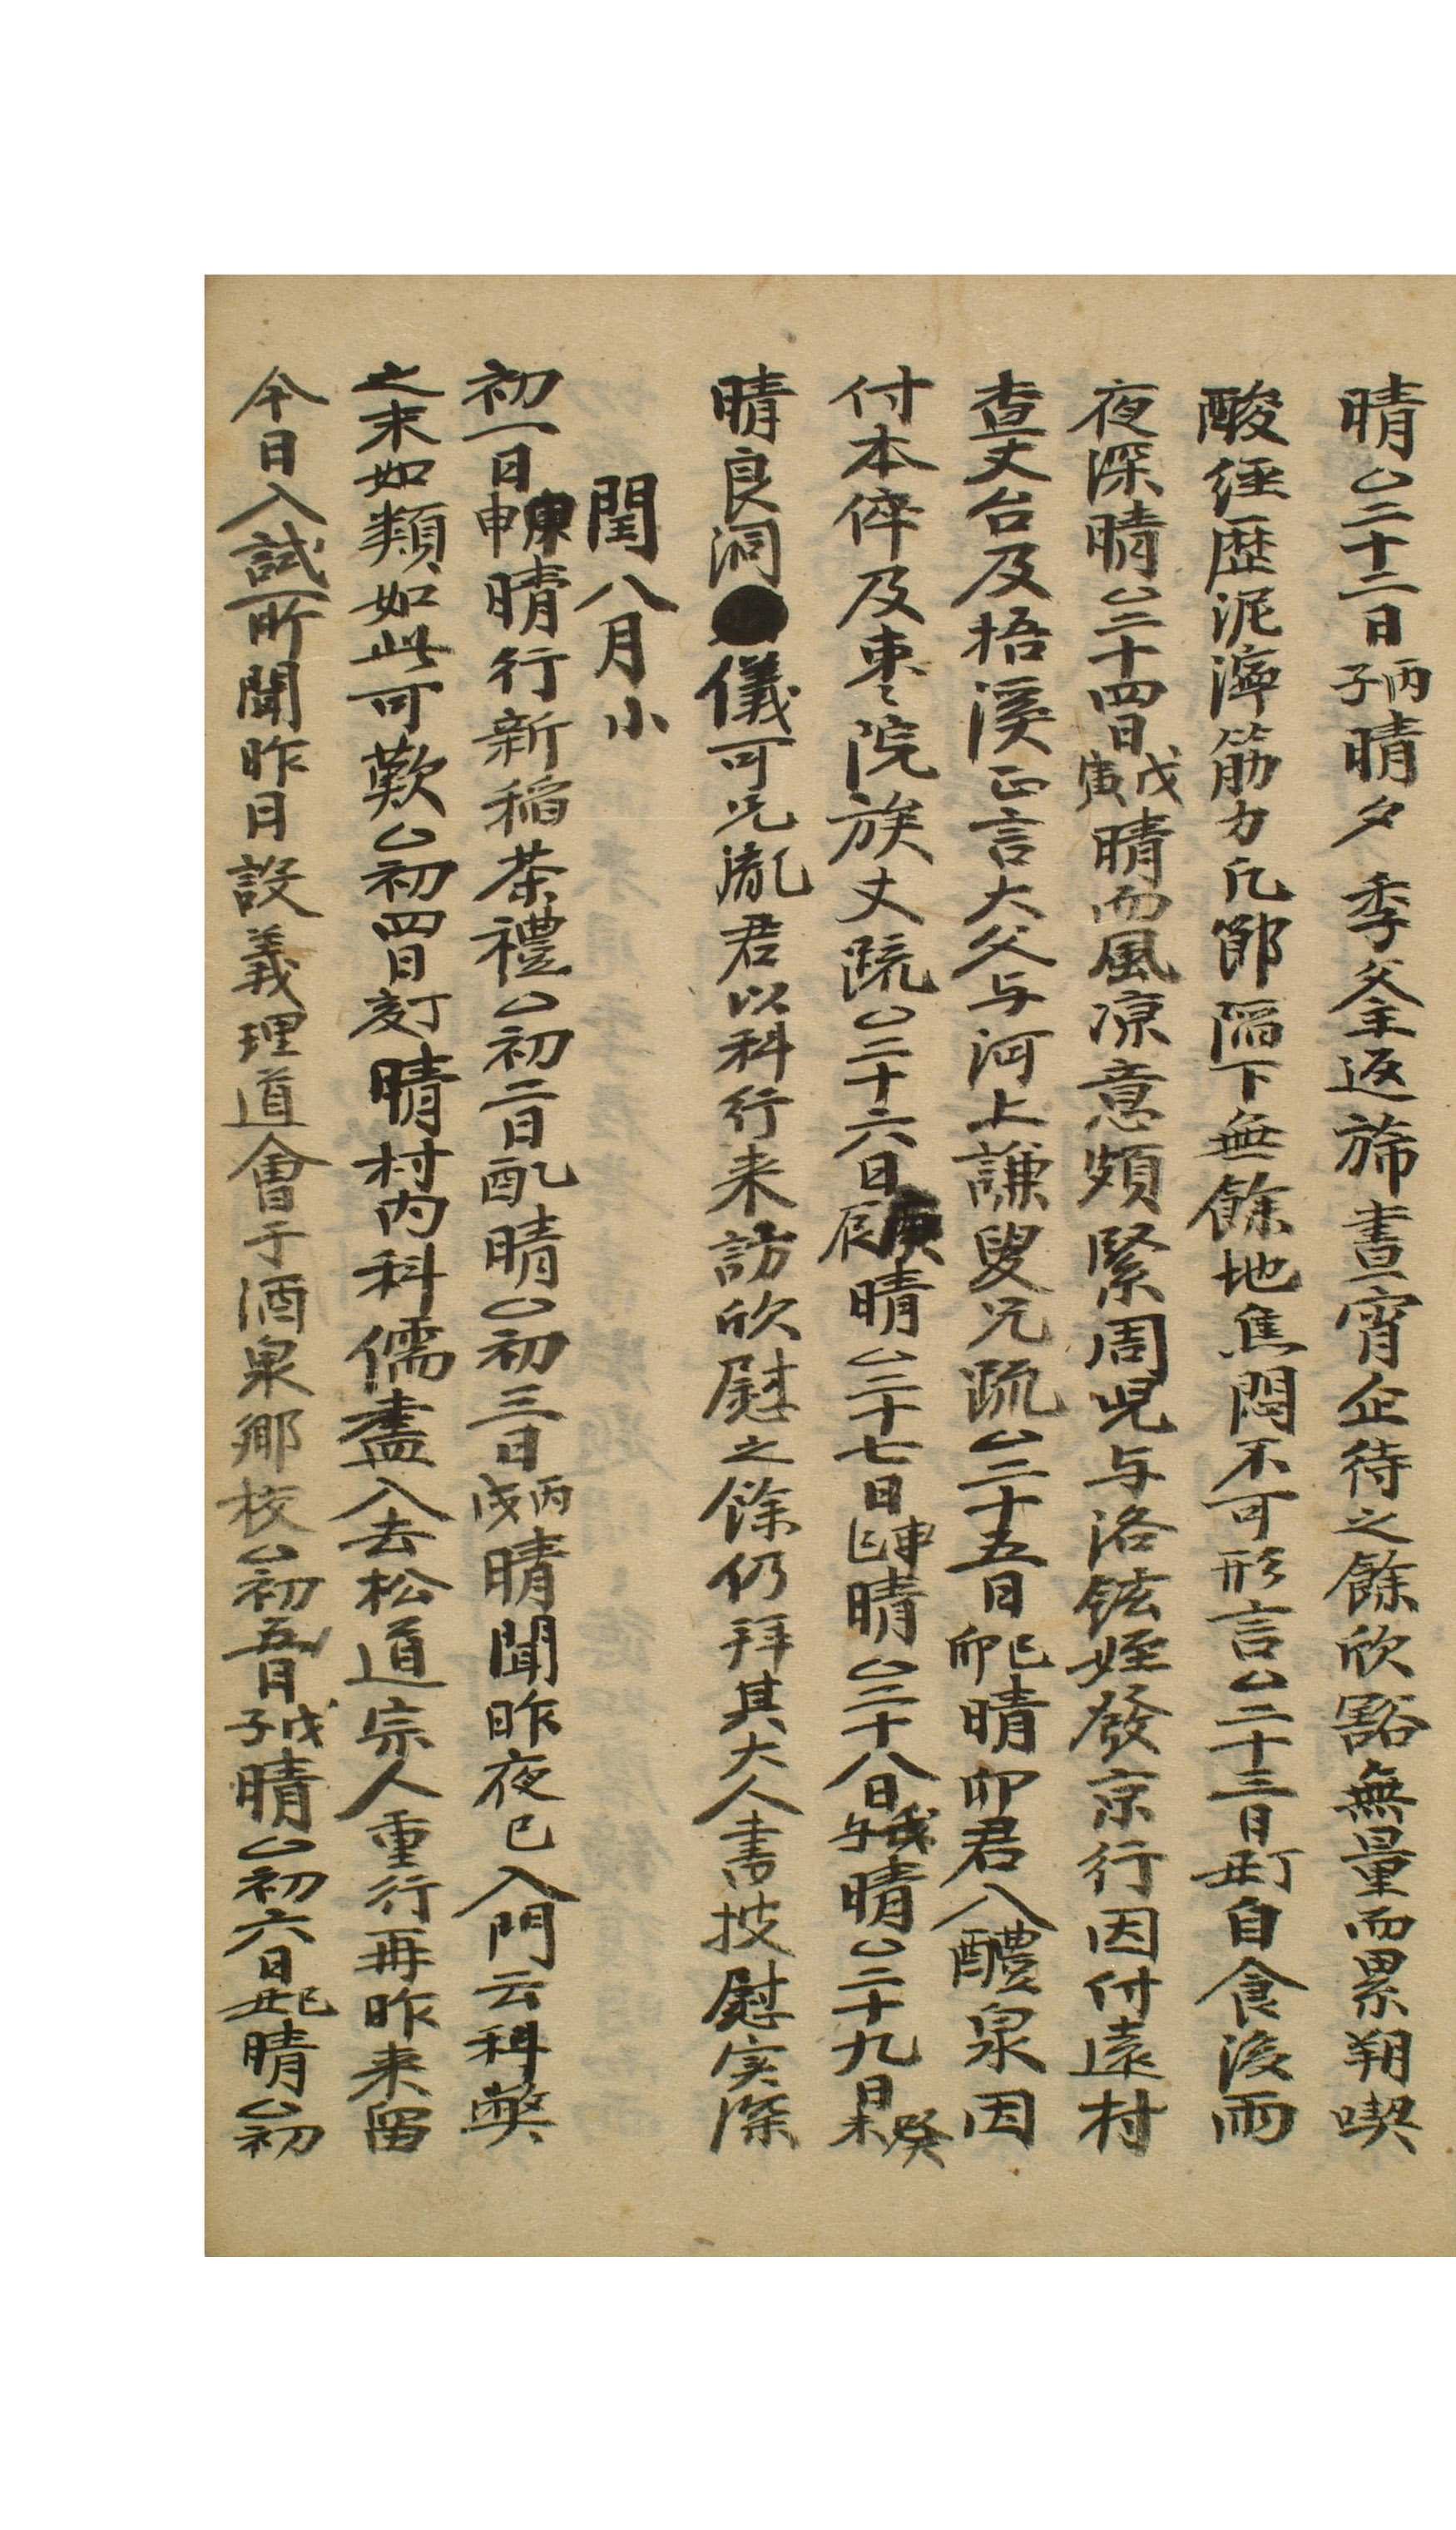 晴◯二十二日丙子晴夕 季父主返旆晝宵企待之餘欣豁無量而累朔喫
酸經歷泥濘筋力凡節隔下無餘地焦悶不可形言◯二十三日丁丑自食後雨
夜深晴◯二十四日戊寅晴而風凉意頗緊周児与洛鉉姪發京行因付遠村
查丈台及梧溪正言大父与河上謙叟兄疏◯二十五日己卯晴卯君入醴泉因
付本倅及棗院族丈疏◯二十六日庚辰晴◯二十七日辛巳晴◯二十八日晴◯二十九日癸未
晴良洞儀可兄胤君以科行来訪欣慰之餘仍拜其大人書披慰实深
閏八月小
初一日庚申晴行新稲茶禮◯初二日乙酉晴◯初三日丙戌晴聞昨夜已入門云科弊
之末如類如此可歎◯初四日丁亥晴村内科儒盡入去松道宗人重行再昨来留
今日入試所聞昨日設義理道會于酒泉鄉校◯初五日戊子晴◯初六日己丑晴◯初